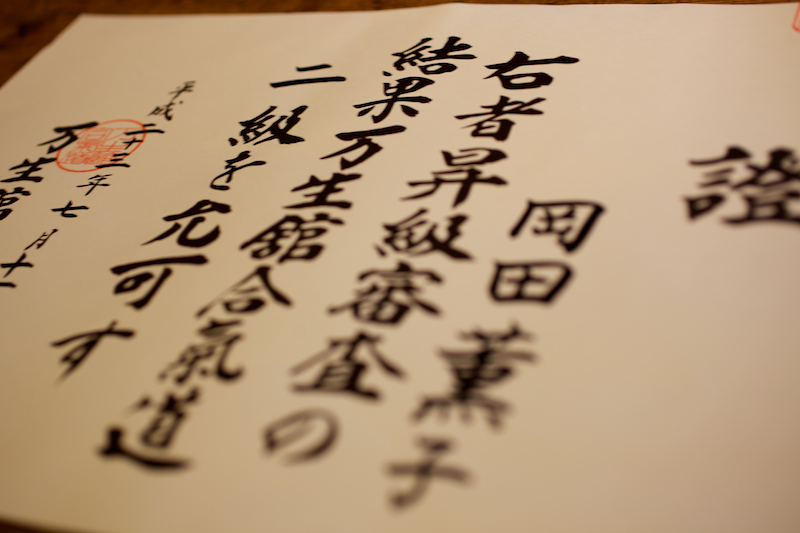 證
岡田薫子
右者昇級審査の
結果万生館合氣道
二級を允可す
平成二十三年七月十
万生館